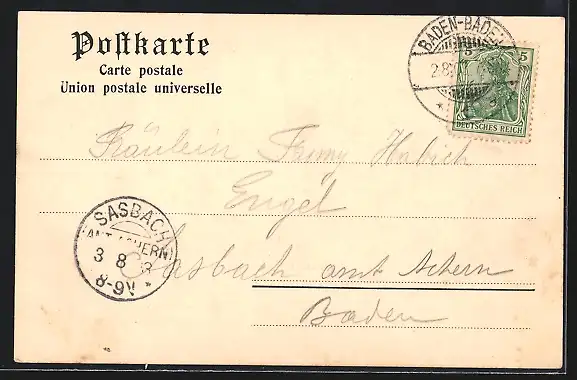 Postkarte
Carte postale
Union postale universelle
BADEN-BADEN
2.8.
5 5
DEUTSCHES REICH
Fräulein Fanny Habich
Engel
Sasbach amt Achern
Baden
SASBACH
(AMT ACHERN)
3 8
8-9V